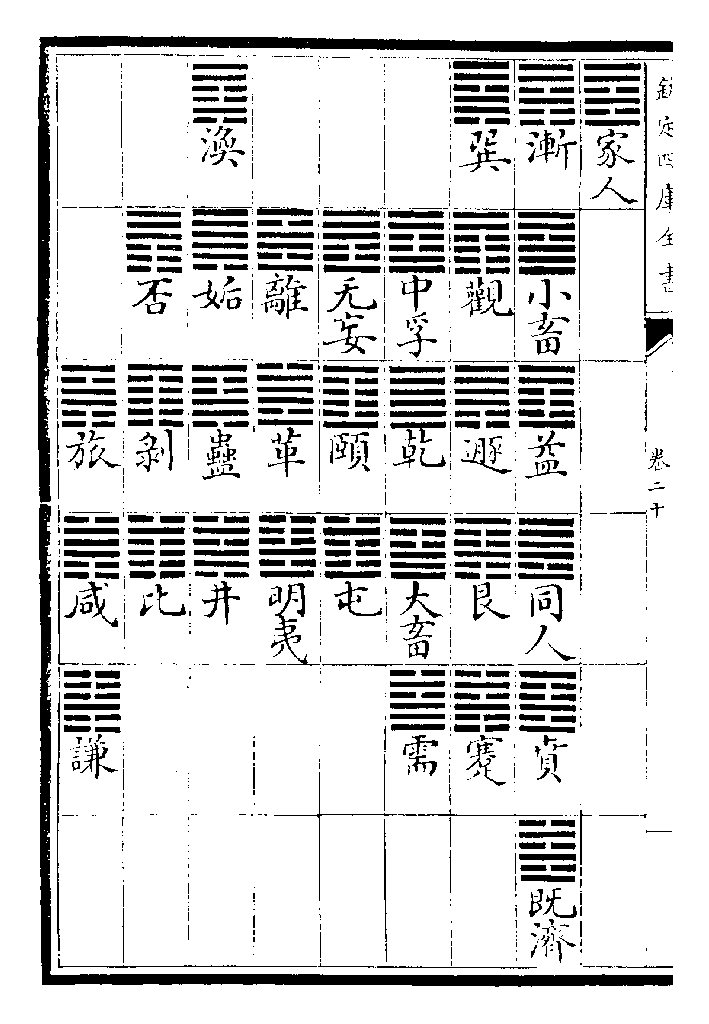 欽定四庫全書
卷二十
家人
漸 小畜 益 同人 賁 既濟
巽 觀 遯 艮 蹇
中孚 乾 大畜 需
无妄 頤 屯
離 革 明夷
渙 姤 蠱 井
否 剝 比
旅 咸 謙